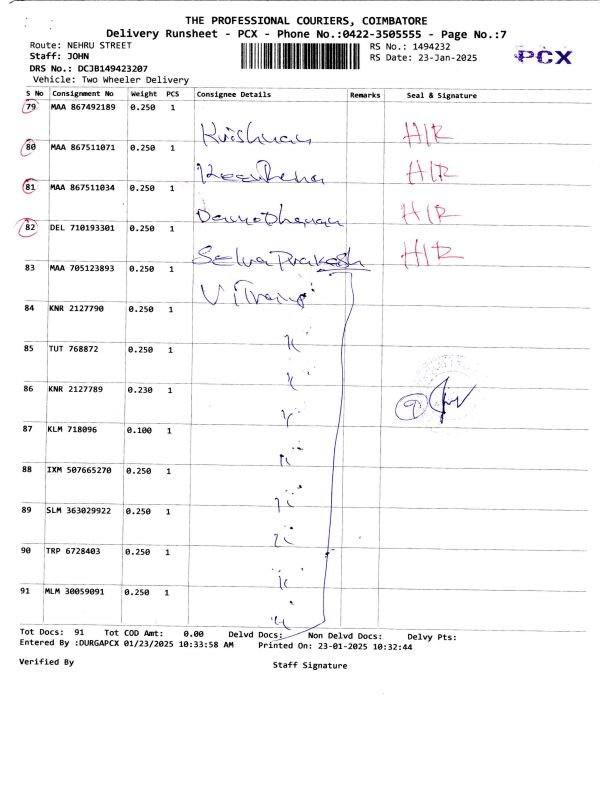 THE PROFESSIONAL COURIERS, COIMBATORE
Delivery Runsheet - PCX - Phone No.:0422-3505555 - Page No.:7
Route: NEHRU STREET RS No.: 1494232
Staff: JOHN RS Date: 23-Jan-2025
PCX
DRS No.: DCJB149423207
Vehicle: Two Wheeler Delivery
S No Consignment No Weight PCS Consignee Details Remarks Seal & Signature
79 MAA 867492189 0.250 1
Krishnan H/R
80 MAA 867511071 0.250 1
H/R
81 MAA 867511034 0.250 1
H/R
82 DEL 710193301 0.250 1
Selva Prakash H/R
83 MAA 705123893 0.250 1
84 KNR 2127790 0.250 1
85 TUT 768872 0.250 1
86 KNR 2127789 0.230 1
9
87 KLM 718096 0.100 1
88 IXM 507665270 0.250 1
89 SLM 363029922 0.250 1
90 TRP 6728403 0.250 1
91 MLM 30059091 0.250 1
Tot Docs: 91 Tot COD Amt: 0.00 Delvd Docs: Non Delvd Docs: Delvy Pts:
Entered By :DURGAPCX 01/23/2025 10:33:58 AM Printed On: 23-01-2025 10:32:44
Verified By Staff Signature